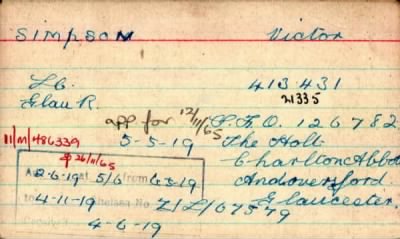 SIMPSON Victor
Lc. 413431
Glau R. 21335
app for 12/11/65 S.F.O. 126782
11/M/486339 5-5-19 The Holt
26/11/65 Charlton Abbot
2-6-19 5/6 from 6-3-19 Andoversford
4-11-19 Chelsea No Z/L/67579 Gloucester.
4-6-19